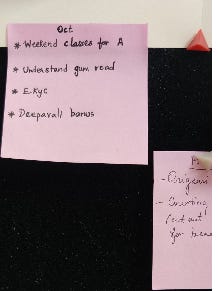 Oct
* Weekend classes for A
* Understand gum read
* E-Kyc
* Deepavali bonus
- Origami
-
cut out
for